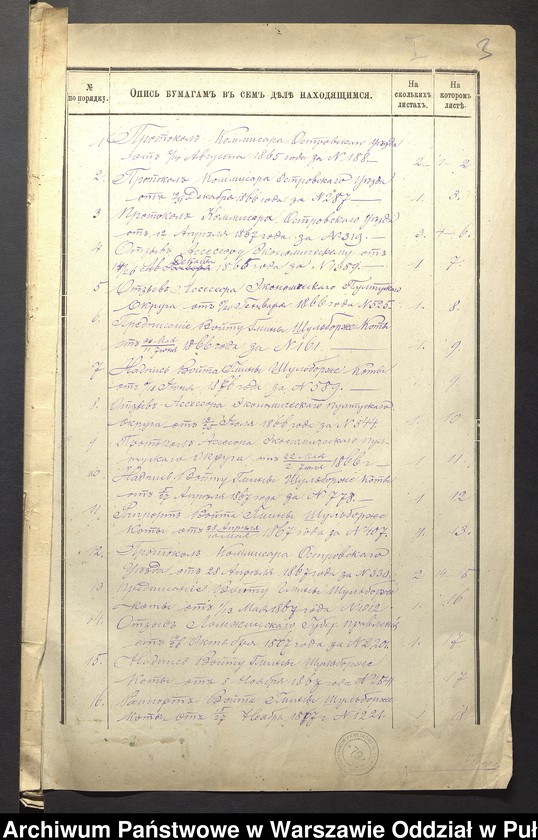 I 3
№ по порядку. Опись бумагамъ въ семъ дѣлѣ находящимся. На сколькихъ листахъ. На которомъ листѣ.
1. Протоколъ Коммисара Островскаго Уѣзда
Августа 1865 года за № 188 — 2 1-2
2. Протоколъ Коммисара Островскаго Уѣзда
отъ Декабря 1866 года за № 87 — 1 3.
3 Протоколъ Коммисара Островскаго Уѣзда
отъ 12 Апрѣля 1867 года за № 319. — 3. 4-6
4 Отзывъ Асессору Экономическому отъ
года за № 1359. — 1. 7.
5 Отзывъ Асессора Экономическаго Пултускаго
Округа отъ Генваря 1866 года № 525. 1. 8.
6. Предписаніе Войту Гмины Шульборже Коты
отъ 1866 года за № 161. — 1. 9.
7 Надпись Войта Гмины Шульборже Коты
отъ Іюня года за № 559. — 1. 9
8. Отзывъ Асессора Экономическаго Пултускаго
округа отъ Іюля 1866 года за № 544. 1. 10
9 Протоколъ Асессора Экономическаго Пул-
тускаго Округа отъ 1866 г — 1 11.
10 Надпись Войту Гмины Шульборже Коты
отъ Апрѣля 1867 года за № 778. — 1. 12
11. Рапортъ Войта Гмины Шульборже
Коты отъ 1867 года за № 407. 1. 13.
12. Протоколъ Коммисара Островскаго
Уѣзда отъ 28 Апрѣля 1867 года за № 330. 2 14-15
13 Предписаніе Войту Гмины Шульборже
Коты отъ 1/13 Мая 1867 года № 1012. 1. 16
14. Отзывъ Ломжинскаго Губер Правленія
отъ Октября 1867 года за № 2,20. 1.
15. Надпись Войту Гмины Шульборже
Коты отъ 8 Ноября 1867 года № 17
16. Раппортъ Войта Гмины Шульборже
Коты отъ Ноября г № 1221. 1. 18
Archiwum Państwowe w Warszawie Oddział w Puł